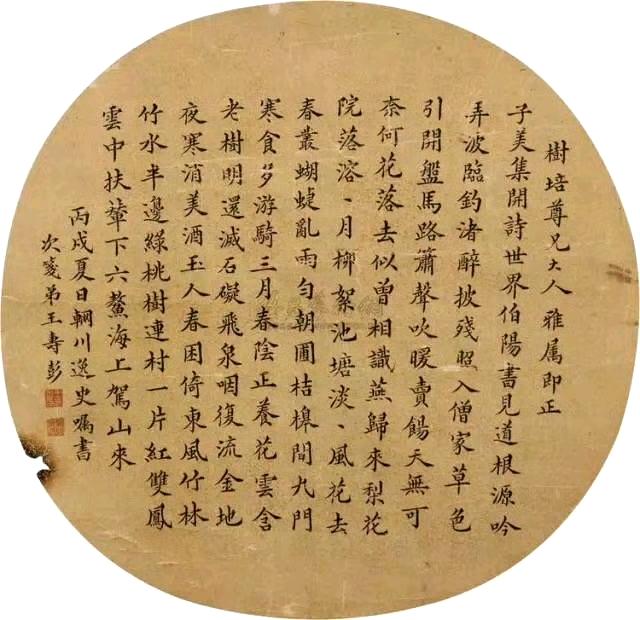 樹培尊兄大人雅属即正
子美集開詩世界伯陽書見道根源吟
弄波臨釣渚醉披殘照入僧家草色
引開盤馬路簫聲吹暖賣餳天無可
奈何花落去似曾相識燕歸來梨花
院落溶、月柳絮池塘淡、風花去
春叢蝴蝶亂雨勻朝圃桔槔閒九門
寒食多游騎三月春陰正養花雲含
老樹明還滅石礙飛泉咽復流金地
夜寒消美酒玉人春困倚東風竹林
竹水半邊綠桃樹連村一片紅雙鳳
雲中扶輦下六鰲海上駕山來
丙戌夏日輞川逸史嘱書
次篯弟王壽彭